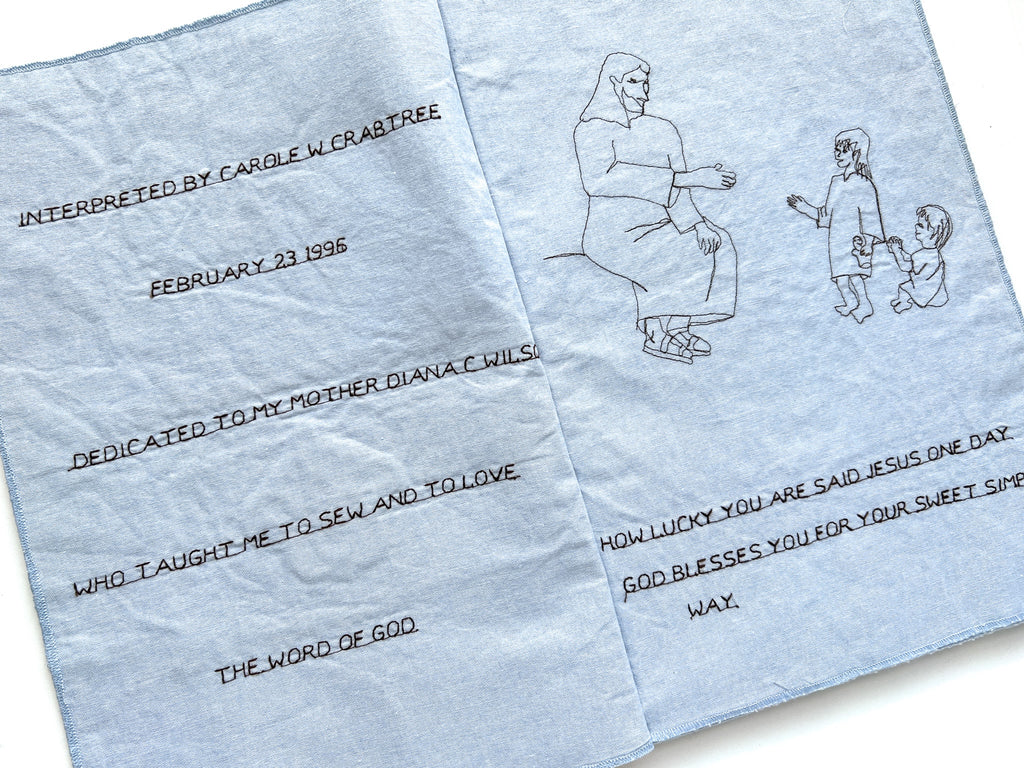 INTERPRETED BY CAROLE W CRABTREE
FEBRUARY 23 1996
DEDICATED TO MY MOTHER DIANA C
WHO TAUGHT ME TO SEW AND TO LOVE
THE WORD OF GOD
HOW LUCKY YOU ARE SAID JESUS ONE DAY
GOD BLESSES YOU FOR YOUR SWEET
WAY.